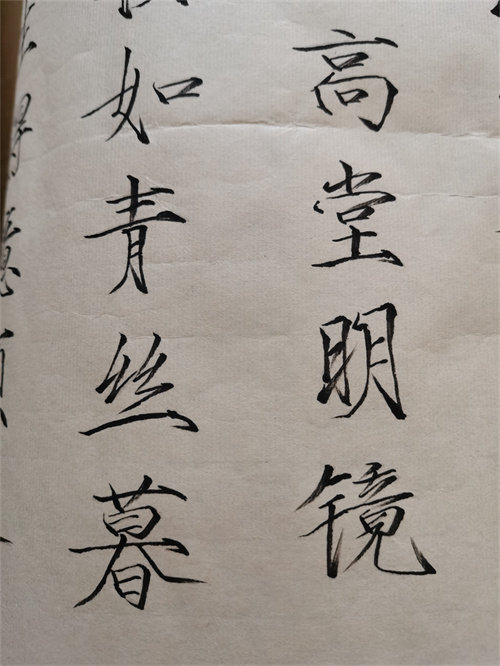 高堂明镜
如青丝暮
意